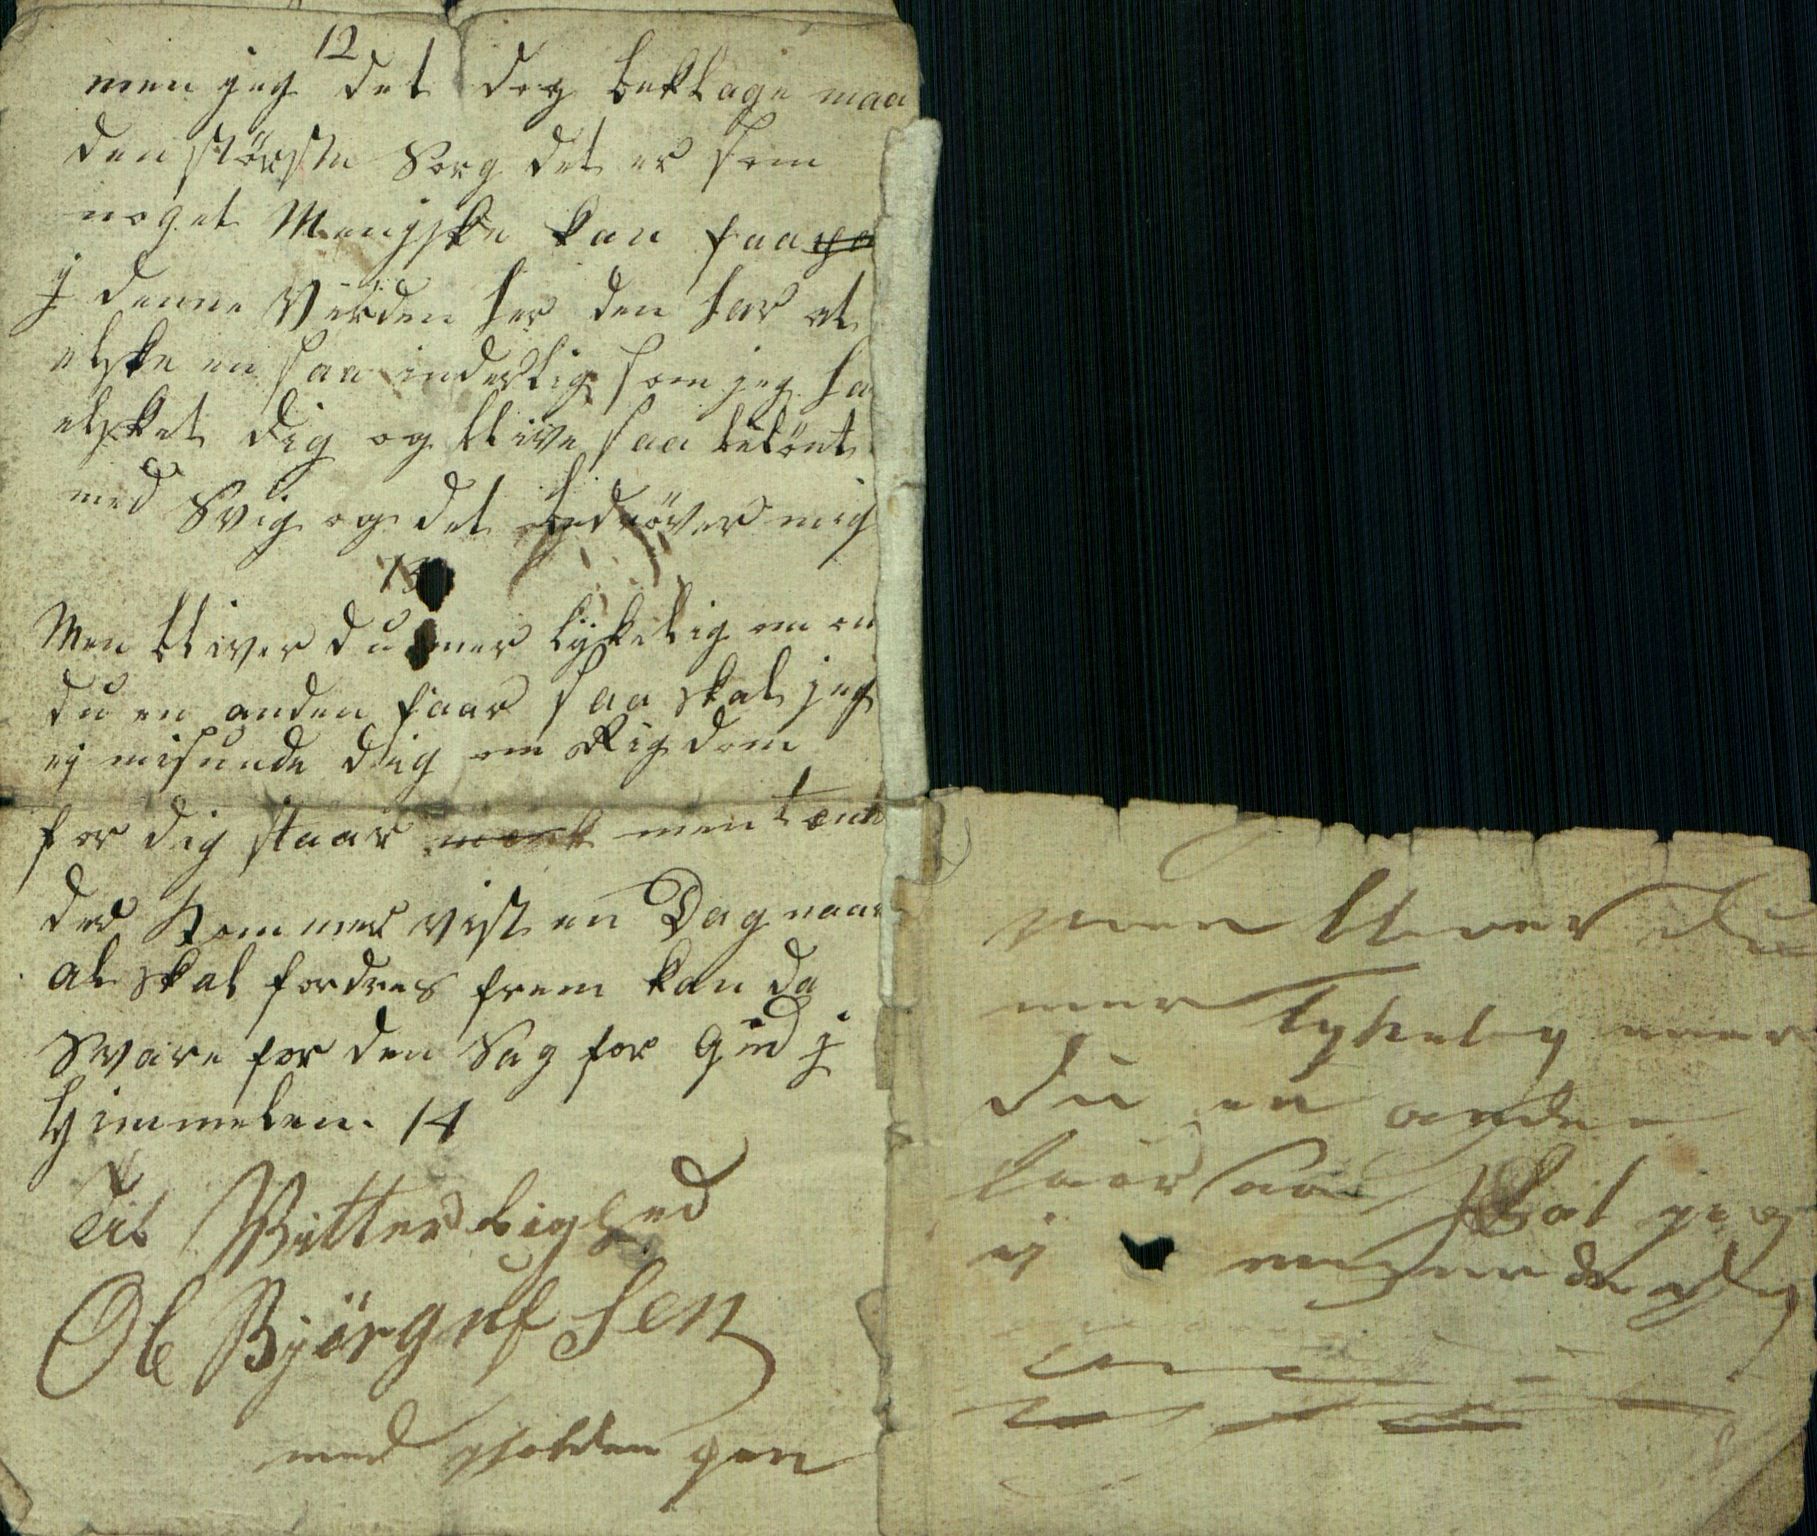 12
men jeg det dog beklage maa
den störste Sorg det er som
noget Menjske kan faa
j denne Verden her den har at
elske en saa inderlig som jeg ha
elsket dig og blive saa belönt
med Svig og det bedröver mig
13
Men bliver du mer lykelig om en
du en anden faar saa skal jeg
ej misunde dig om Rigdom
for dig staar men tænk
der kommer vist en Dag naar
al skal fordres frem kan da
Svare for den Sag for Gud j
Himmelen. 14
Til Vitterlighed
Ole Björgufsen
med holden pen
men bliver du
mer lykelig
du en anden
faar saa skal jeg
ej misunde dig